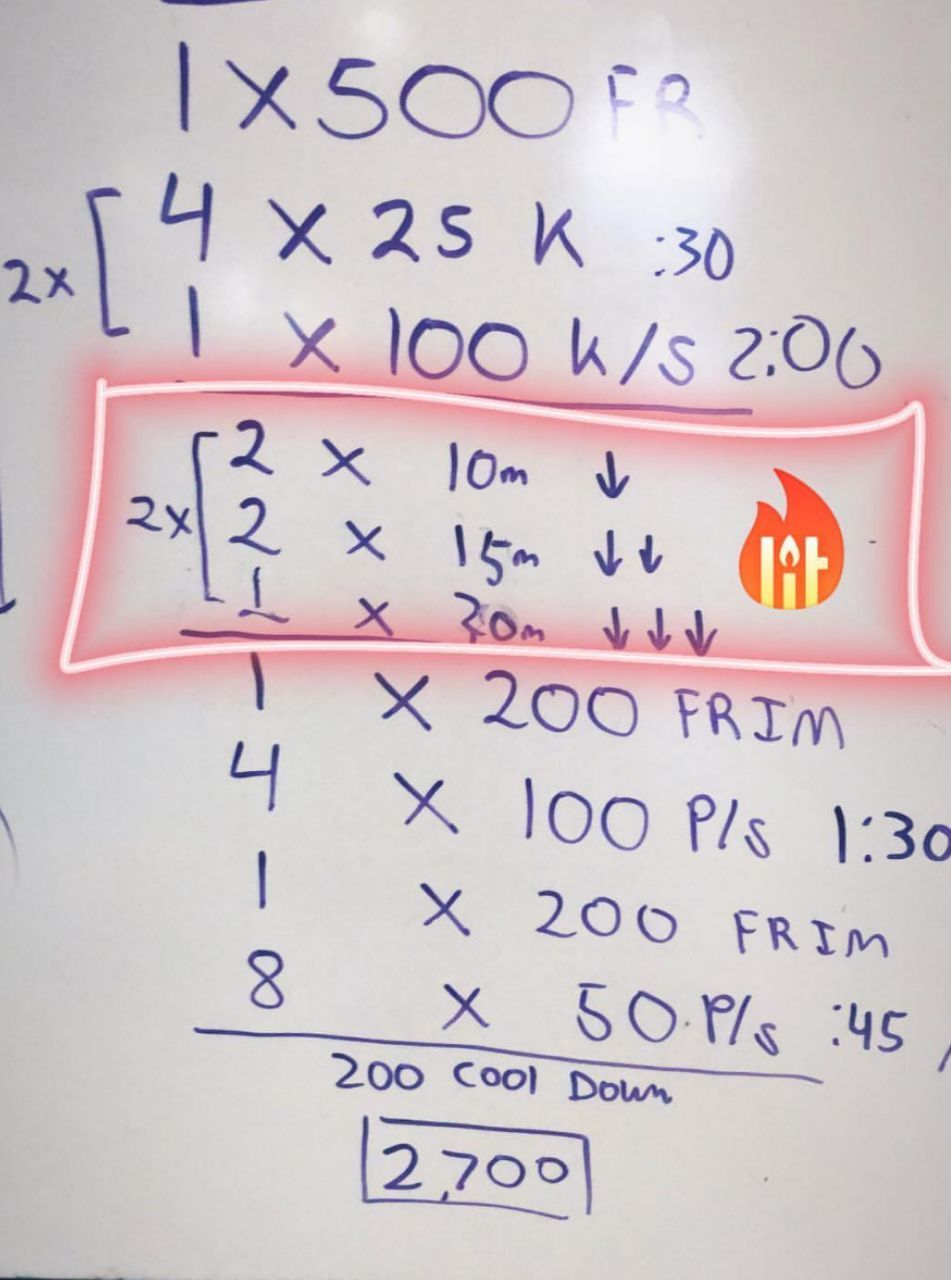 1 X 500 FR
2x [ 4 X 25 K :30
1 X 100 K/S 2:00
2x [ 2 X 10m ↓
2 X 15m ↓↓
lit
1 X 20m ↓↓↓
1 X 200 FRIM
4 X 100 P/S 1:30
1 X 200 FRIM
8 X 50 P/S :45
200 Cool Down
2,700